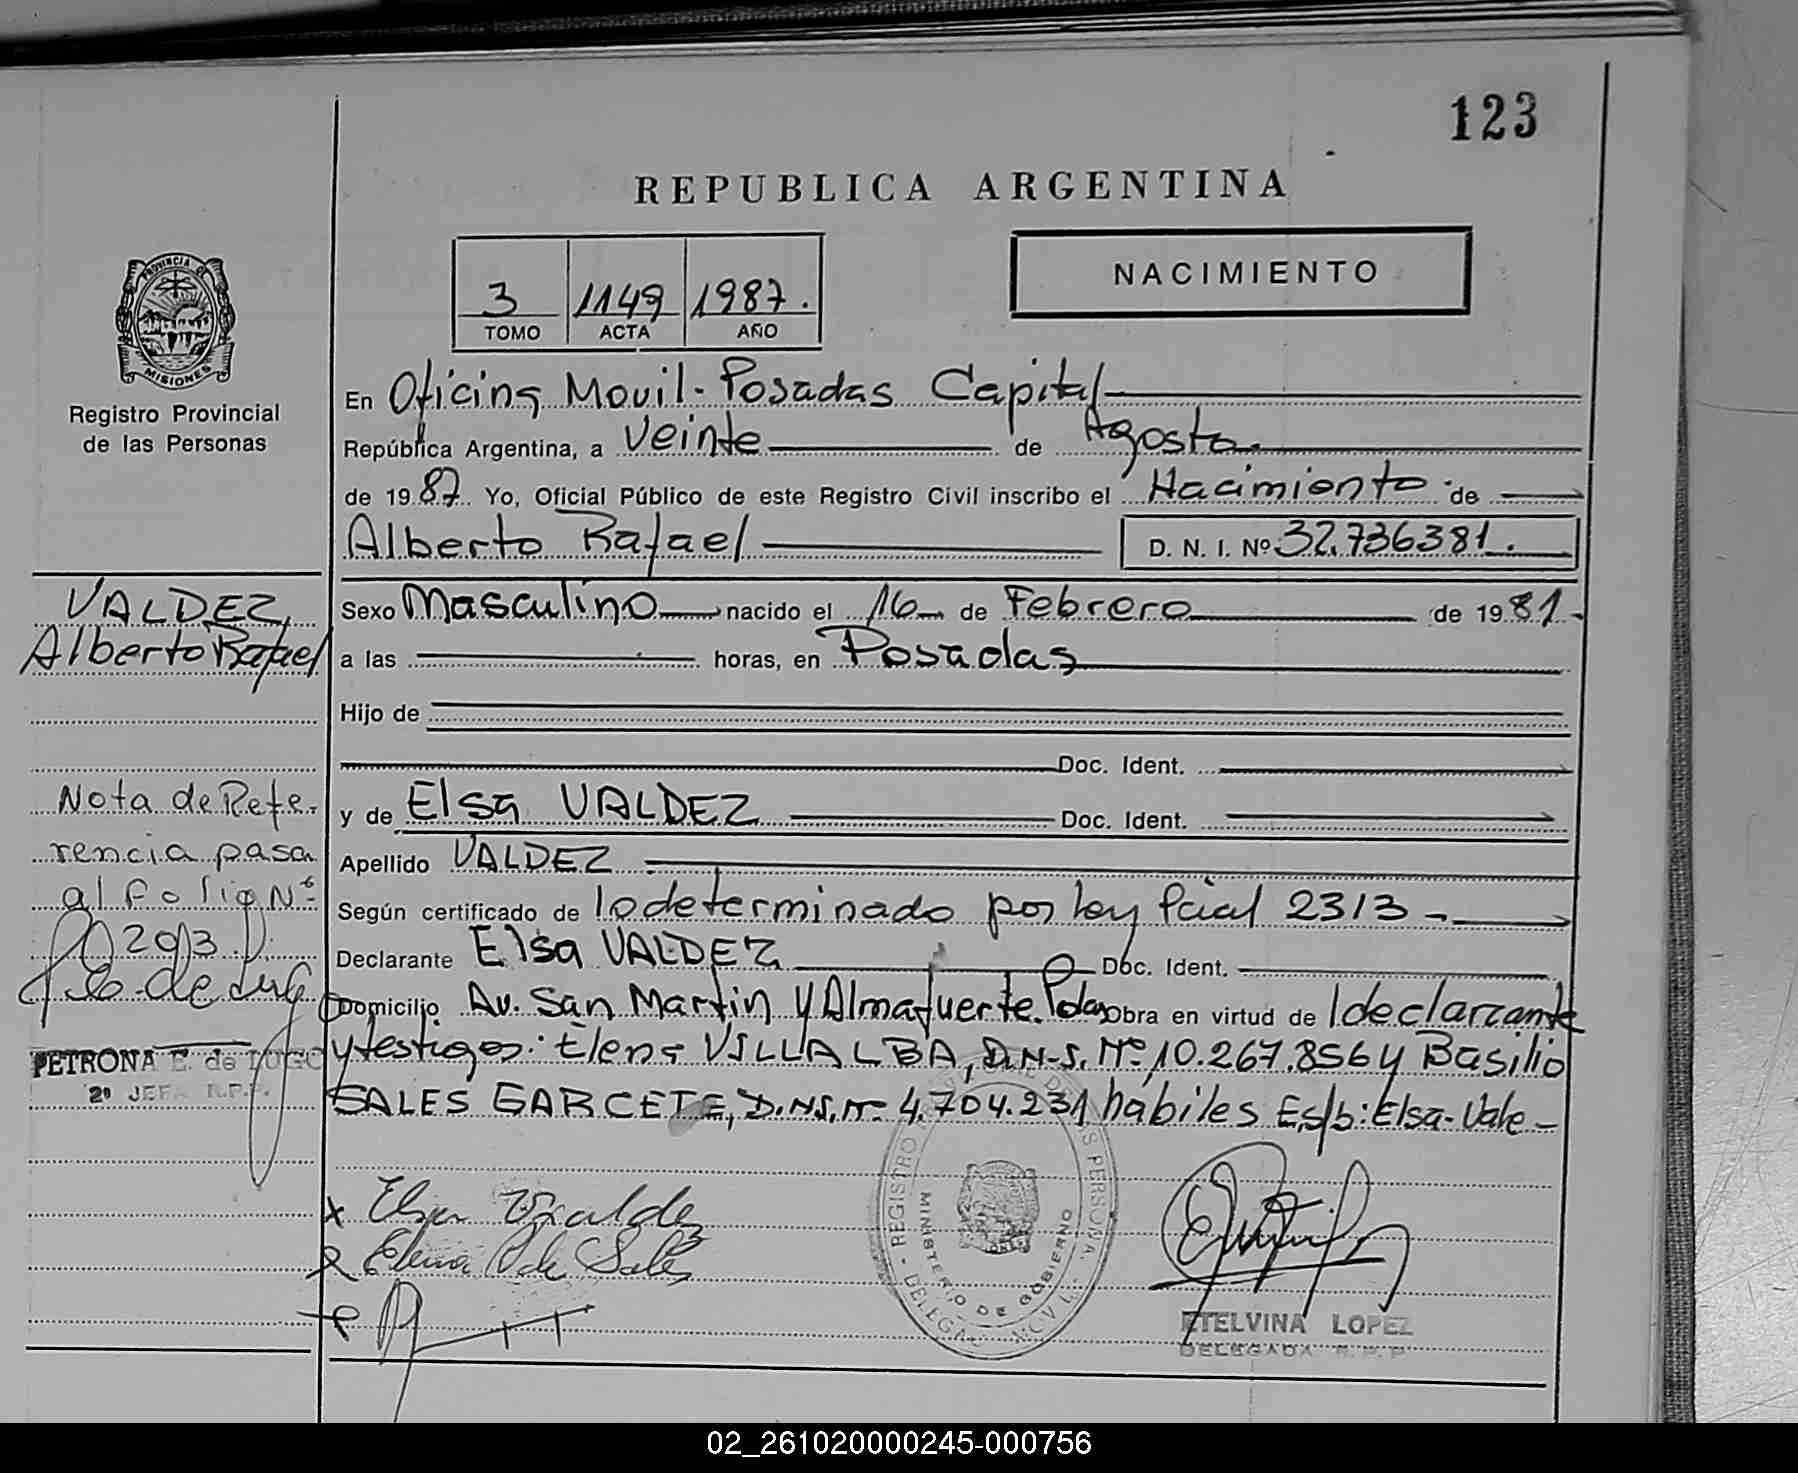 123
REPUBLICA ARGENTINA
3 1149 1987.
TOMO ACTA AÑO
NACIMIENTO
PROVINCIA DE
MISIONES
Registro Provincial
de las Personas
En Oficina Movil - Posadas Capital
República Argentina, a Veinte de Agosto
de 1987 Yo, Oficial Público de este Registro Civil inscribo el Nacimiento de
Alberto Rafael D. N. I. Nº 32.736381.
VALDEZ,
Alberto Rafael
Sexo Masculino nacido el 16 de Febrero de 1981
a las horas, en Posadas
Hijo de
Doc. Ident.
y de Elsa VALDEZ Doc. Ident.
Apellido VALDEZ
Según certificado de lo determinado por ley Pcial 2313
Declarante Elsa VALDEZ Doc. Ident.
Domicilio Av. San Martin y Almafuerte. Pdas obra en virtud de l declarante
y testigos: Elena VILLALBA, D.N.I. Nº 10.267.856 y Basilio
SALES GARCETE, D.N.I. Nº 4.704.231 habiles Es/b: Elsa - Vale -
Nota de Refe-
rencia pasa
al folio Nº
293
PETRONA E. de LUGO
2º JEFA R.P.P.
Elsa Valdez
Elena V de Sales
REGISTRO
PERSONAS
MINISTERIO DE GOBIERNO
ETELVINA LOPEZ
DELEGADA R.P.P
02_261020000245-000756